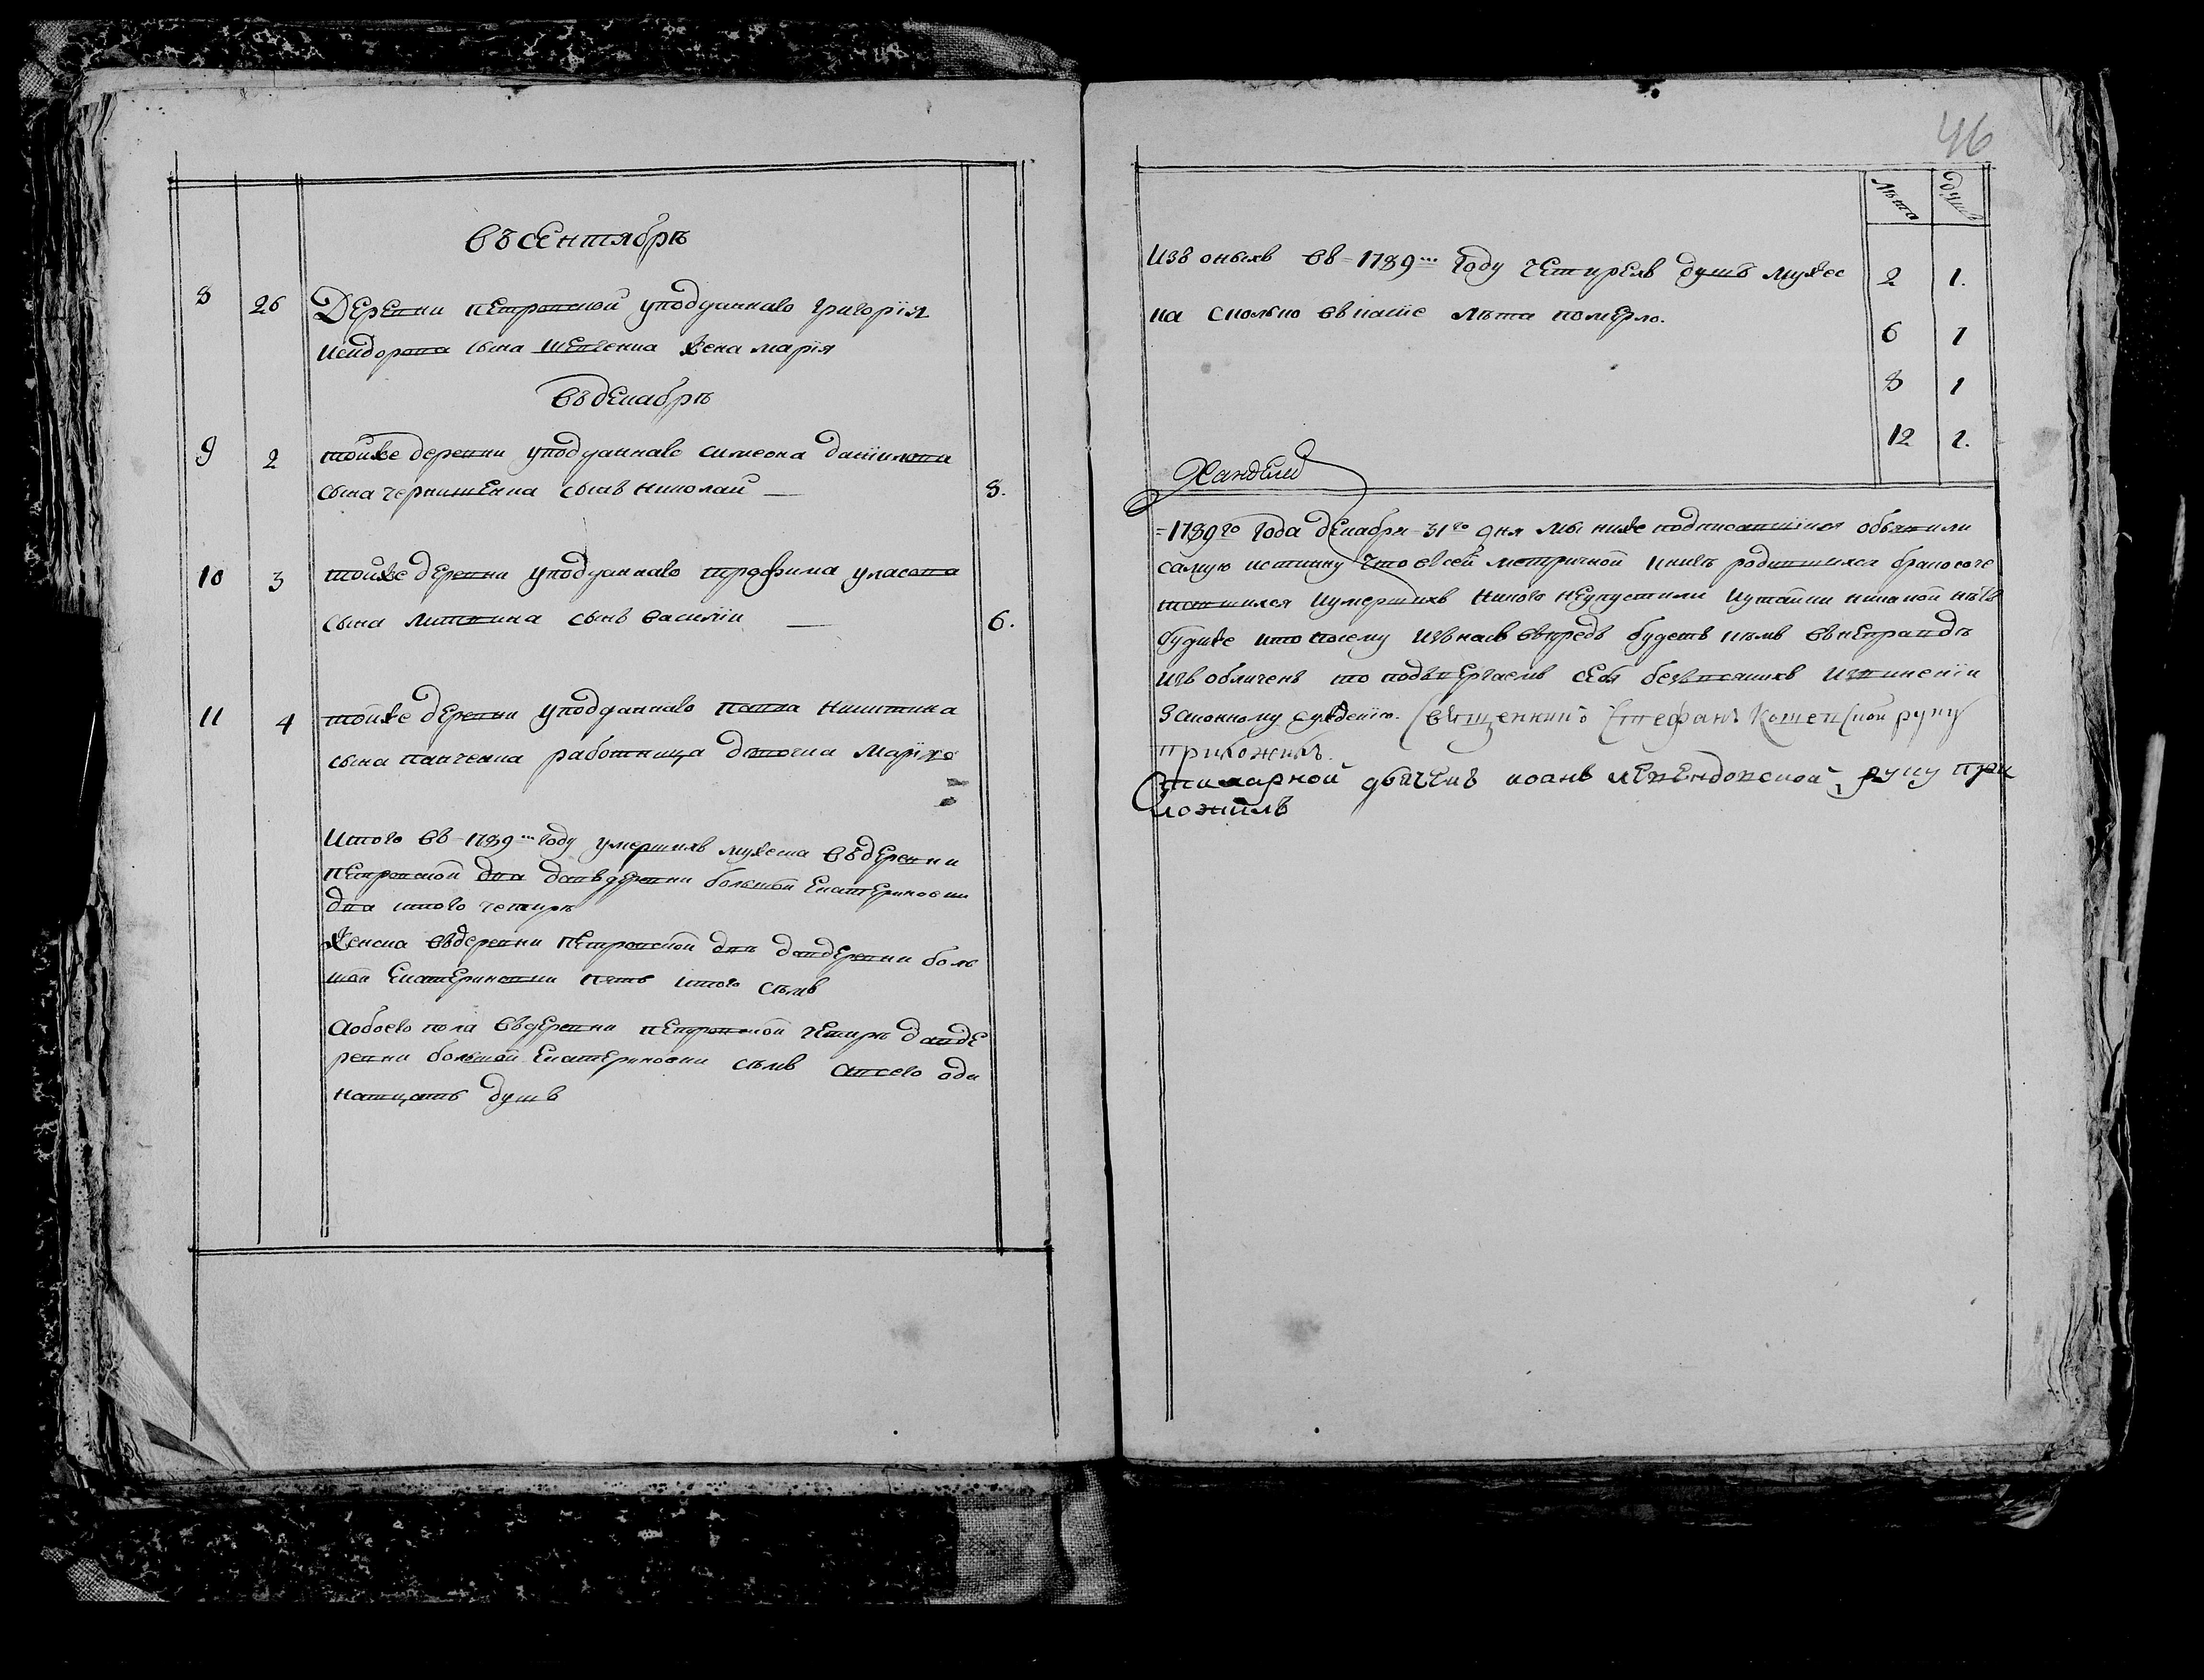 въ сентябрѣ
8 26 Деревни петровской уподданнаго григорїя
исидорова сына шевченка жена марїя
въ декабрѣ
9 2 тойже деревни уподданнаго симеона данилова
сына чернишенка сынъ николай — 8.
10 3 тойже деревни уподданнаго трофима уласова
сына литвина сынъ василїй — 6.
11 4 тойже деревни уподданнаго павла никитина
сына панченка работница девочка
Итого въ 1789 году умершихъ мужеска въ деревни
петровской два да въ деревни большой Екатериновки
два итого четирѣ
женска въ деревни петровской двѣ да в деревни боль
шой Екатериновки пять итого сѣмъ
а обоего пола въ деревни петровской четирѣ да в де
ревни большой Екатериновки сѣмъ а всего оди
натцать душъ
46
лѣта душъ
Изъ оныхъ въ 1789 году четирехъ душъ мужес
ка сколько въ какїе лѣта померло.
2 1.
6 1
8 1
12 1.
=1789го года декабря 31го дня мы ниже подписавшїися объявили
самую истинну что в сей метричной книгѣ родившихся бракосоче
тавшихся и умершихъ никого неупустили и утайки никакой нѣтъ
будиже кто посему изъ насъ впредъ будетъ кѣмъ въ неправдѣ
изъобличенъ то подвергаемъ себя безъ всякихъ извиненїи
законному суждению. священникъ Стефанъ руку
приложилъ.
Стихарной дьячекъ иоанъ левендовской руку при
ложилъ